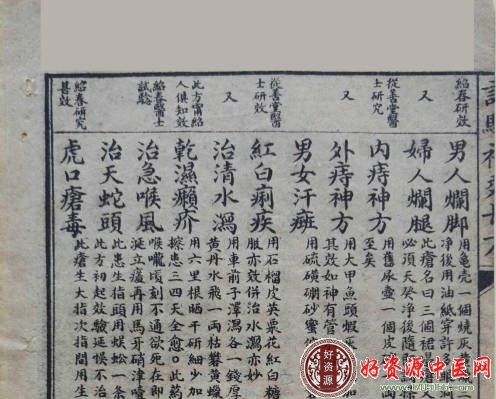 紹春研效
男人爛脚
用龟壳一個燒灰
净後用油紙穿許
又
婦人爛腿
此瘡名曰三個裙
必頂天癸净後隨
從善堂醫士研究
內痔神方
用舊尿壺一個皮
至矣
又
外痔神方
用大甲魚頭煆灰
其效如神有管
又
男女汗斑
用硫磺硼砂蜜
從善堂醫士研效
紅白痢疾
用石榴皮英粟花紅白糖
服亦效併治水瀉亦妙
又
治清水瀉
用車前子澤瀉各一錢厚
黄丹水飛一兩枯礬黄蠟
此方需紹人俱知效
乾濕癩疥
用六里根晒干研細少加
擦患三四天全愈。此葯
紹春醫士試驗
治急喉風
喉嚨頃刻不通欲死在即
涎立瘥再用馬牙硝津嚥
治天蛇頭
此患生指頭用蜈蚣一条
此方初起效驗延悞不治
紹春研究甚效
虎口瘡毒
此瘡生大指次指間用生
好資源
好资源中医网